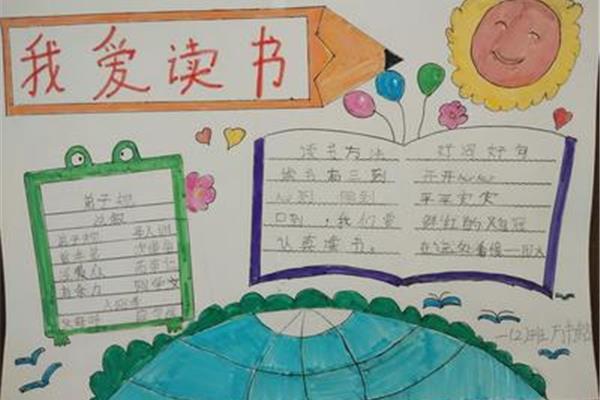 我爱读书
弟子规
总叙
弟子规 圣人训
首孝弟 次谨信
泛爱众 而亲仁
有余力 则学文
入则孝
读书方法
读书有三到
心到 眼到
口到，我们要
认真读书。
好词好句
开开心心
平平安安
鲜红的鸡冠
一(2)班